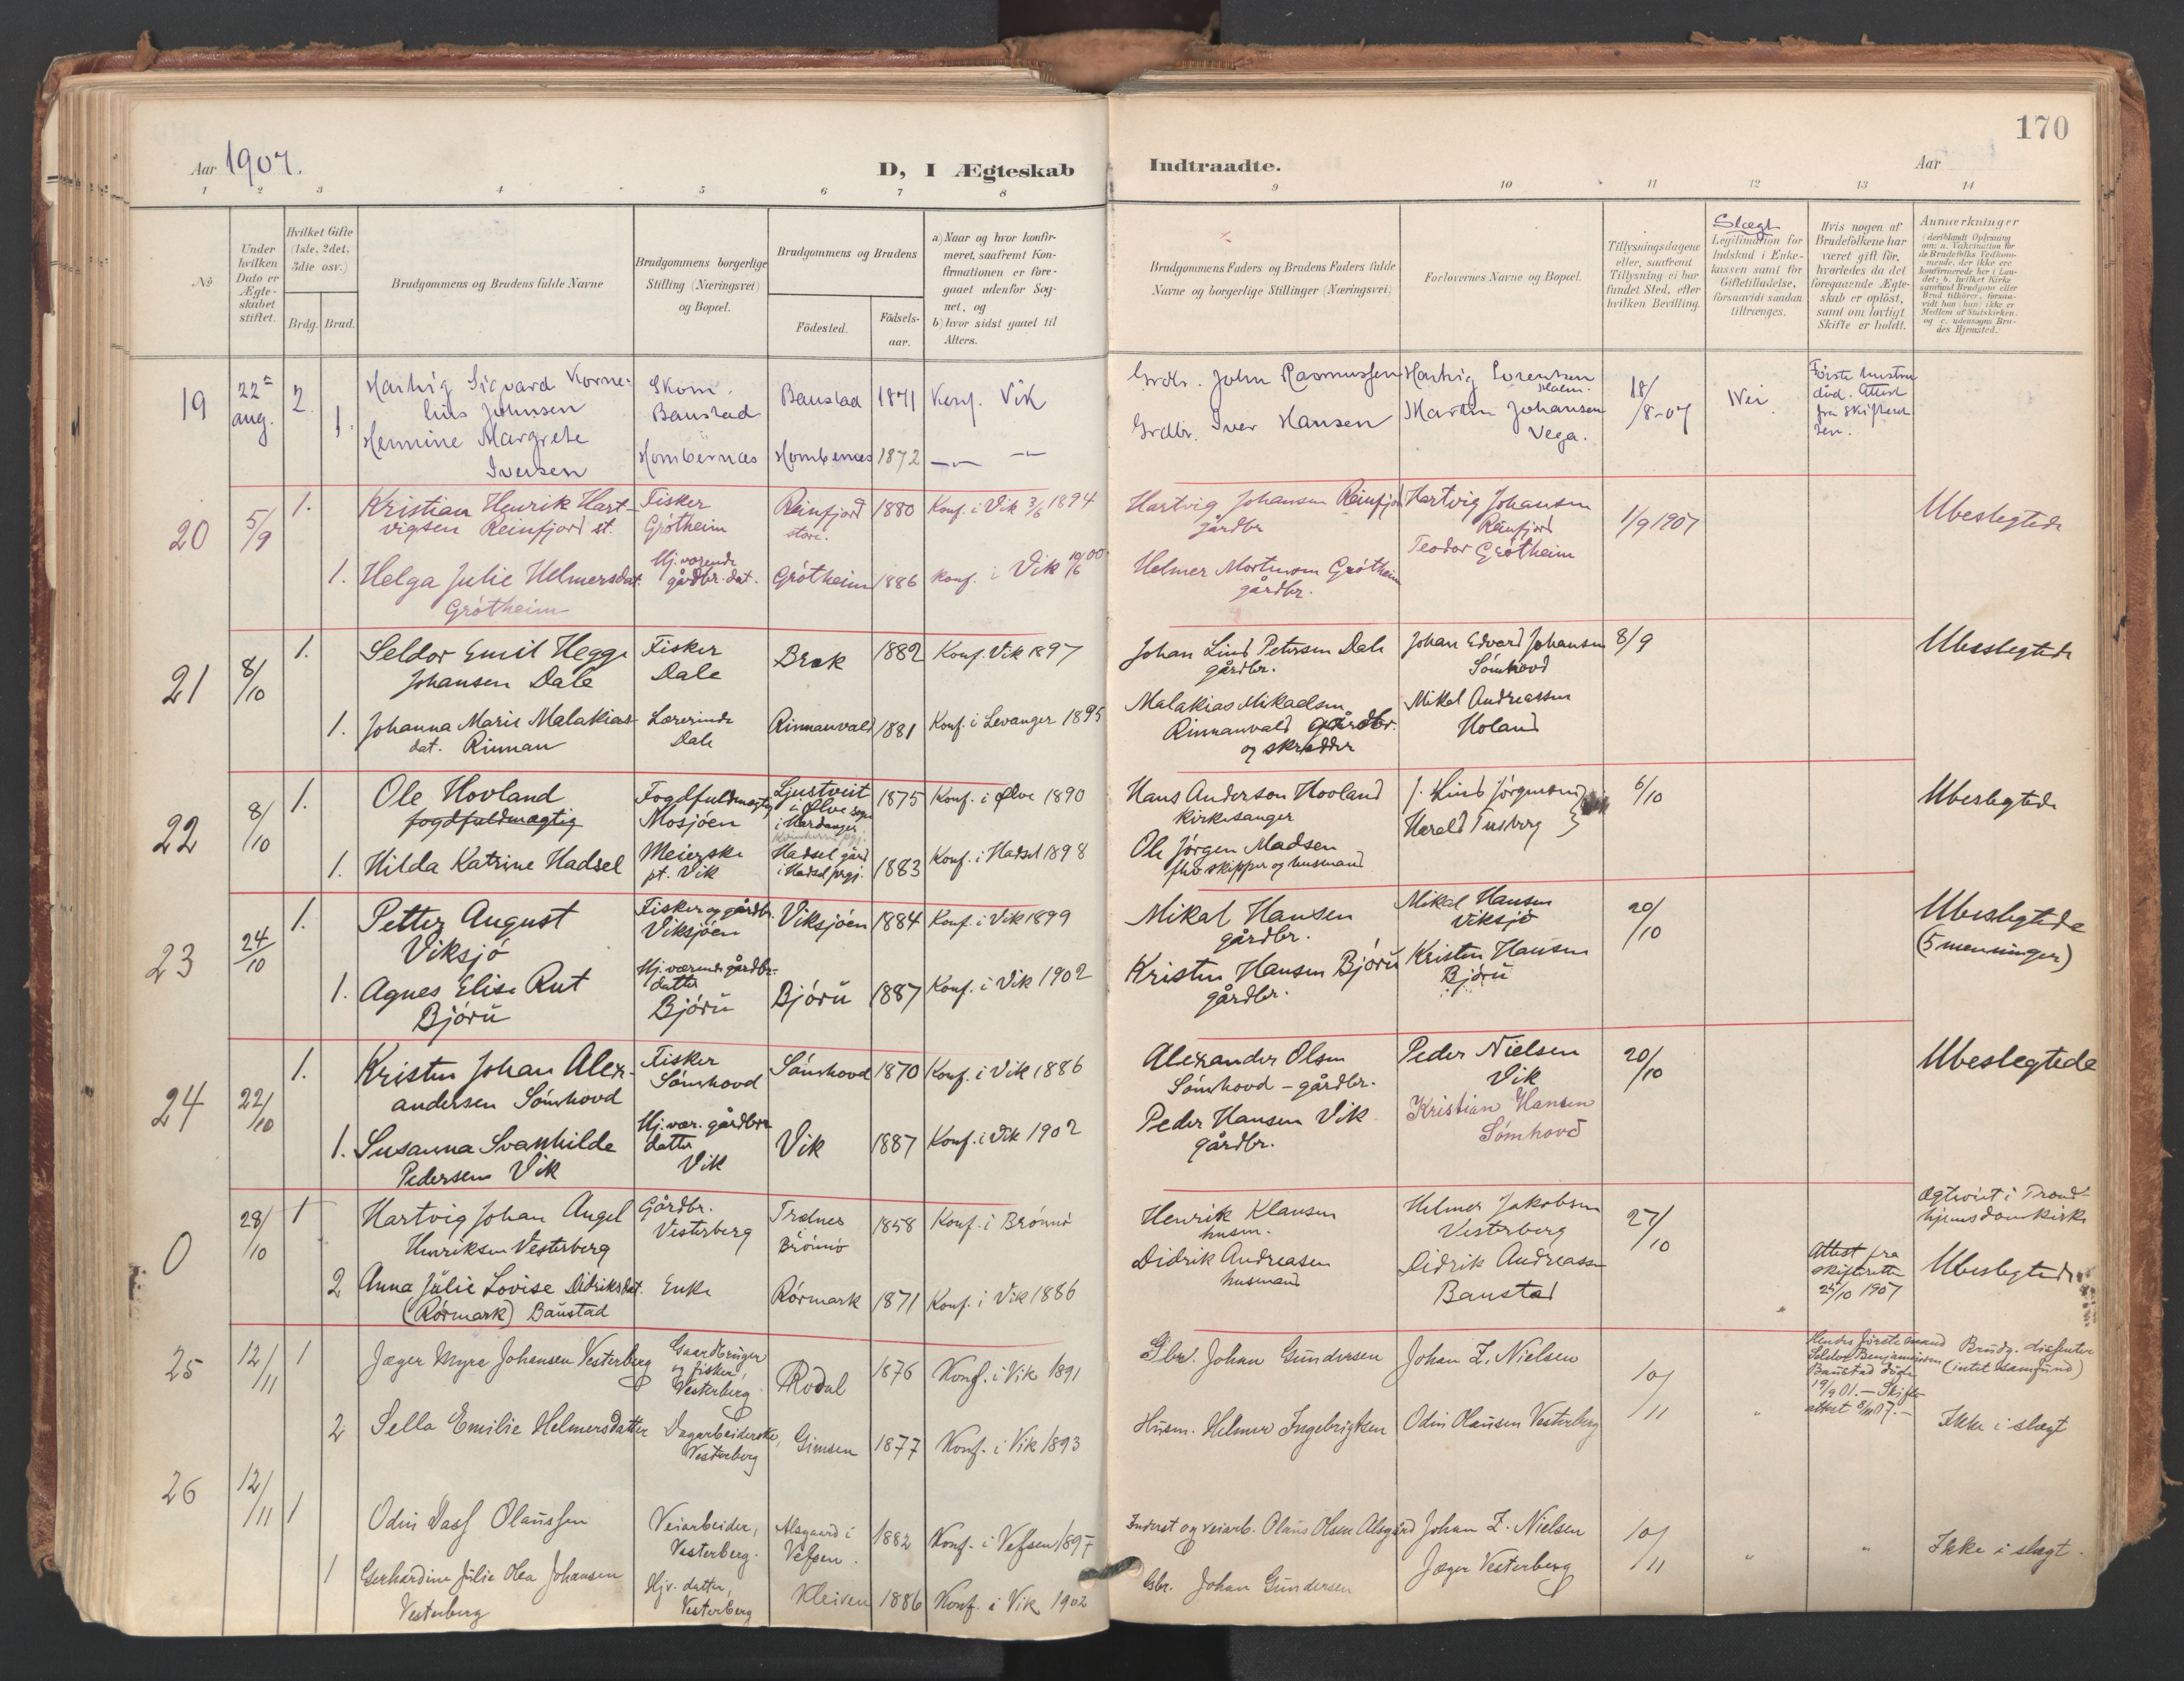 170
Aar 1907.
D, I Ægteskab Indtraadte.
Aar
1 2 3 4 5 6 7 8 9 10 11 12 13 14
No
Under hvilken Dato er Ægteskabet stiftet.
Hvilket Gifte (1ste, 2det, 3die osv.)
Brdg. Brud.
Brudgommens og Brudens fulde Navne
Brudgommens borgerlige Stilling (Næringsvei) og Bopæl.
Brudgommens og Brudens
Födested.
Födsels-aar.
a) Naar og hvor konfirmeret, saafremt Konfirmationen er foregaaet udenfor Sognet, og
b) hvor sidst gaaet til Alters.
Brudgommens Faders og Brudens Faders fulde Navne og borgerlige Stillinger (Næringsvei)
Forlovernes Navne og Bopæl.
Tillysningsdagene eller, saafremt Tillysning ei har fundet Sted, efter hvilken Bevilling.
Slægt
Legitimation for Indskud i Enkekassen samt for Giftetilladelse, forsaavidt saadan tiltrænges.
Hvis nogen af Brudefolkene har været gift för, hvorledes da det foregaaende Ægteskab er oplöst, samt om lovligt Skifte er holdt.
Anmærkninger
19 22de aug. 2 Hartvig Sigvard Kornelius Johnsen Skom. Baustad Baustad 1871 Konf. Vik Grdbr. John Rasmussen Hartvig Lorentsen 18/8-07 Nei Første hustru död. Attest fra Skifteretten.
1. Hermine Margrete Iversen Hombernæs Hombernæs 1872 —"— —"— Grdbr. Iver Hansen Martin Johansen Vega.
20 5/9 1. Kristian Henrik Hartvigsen Reinfjord st. Fisker Grötheim Reinfjord store. 1880 Konf. i Vik 3/6 1894 Hartvig Johansen Reinfjord gårdbr Hartvig Johansen Reinfjord 1/9 1907 Ubeslegtede
1. Helga Julie Helmersdat. Grötheim Hj. værende gårdbr. dat. Grötheim 1886 Konf. i Vik 10/6 00 Helmer Mortensen Grötheim gårdbr. Teodor Grötheim
21 8/10 1. Seldor Emil Hegge Johansen Dale Fisker Dale Brek 1882 Konf. Vik 1897 Johan Lind Petersen Dale gårdbr. Johan Edvard Johansen Sömhovd 8/9 Ubeslegtede
1. Johanna Marie Malakiasdat. Rinnan Lærerinde Dale Rinnanvald 1881 Konf. i Levanger 1895 Malakias Mikaelsen Rinnanvald gårdbr. og skrædder Mikal Andreassen Holand
22 8/10 1. Ole Hovland fogdfuldmægtig Fogdfuldmægtig Mosjöen Ljustveit i Ølve sogn i Hardanger 1875 Konf. i Ølve 1890 Hans Anderson Hovland Kirkesanger J. Lind Jörgensen 6/10 Ubeslegtede
1. Hilda Katrine Hadsel Meierske pt. Vik Hadsel gård i Hadsel prgj. 1883 Konf. i Hadsel 1898 Ole Jörgen Madsen fhv skipper og husmand Harald
23 24/10 1. Petter August Viksjö Fisker og gårdbr. Viksjöen Viksjöen 1884 Konf. i Vik 1899 Mikal Hansen gårdbr. Mikal Hansen Viksjö 20/10 Ubeslegtede (5 menninger)
1. Agnes Elise Rut Björü Hj. værende gårdbr. datter Björü Björü 1887 Konf. i Vik 1902 Kristen Hansen Björü gårdbr. Kristen Hansen Björü
24 22/10 1. Kristen Johan Alexandersen Sömhovd Fisker Sömhovd Sömhovd 1870 Konf. i Vik 1886 Alexander Olsen Sömhovd – gårdbr. Peder Nielsen Vik 20/10 Ubeslegtede
1. Susanna Svanhilde Pedersen Vik Hj. vær. gårdbr datter Vik Vik 1887 Konf. i Vik 1902 Peder Hansen Vik gårdbr. Kristian Hansen Sömhovd
0 28/10 1 Hartvig Johan Angel Henriksen Vesterberg Gårdbr. Vesterberg Trælnes Brönnö 1858 Konf. i Brönnö Henrik Klausen husm. Helmer Jakobsen Vesterberg 27/10 Ægteviet i Trondhjems domkirke
2 Anna Julie Lovise Didriksdat. (Rörmark) Baustad Enke Rörmark 1871 Konf. i Vik 1886 Didrik Andreasen husmand Didrik Andreassen Baustad Attest fra skifteretten 25/10 1907 Ubeslegtede
25 12/11 1 Jæger Myre Johansen Vesterberg Gaardbruger og fisker, Vesterberg Rodal 1876 Konf. i Vik 1891 Gbr. Johan Gundersen Johan Z. Nielsen 10/11 " Hendes förste mand Seldor Benjaminsen Baustad döde 19/9 01. – Skifteattest 8/11 07. – Brudg. dissenter (intet samfund)
2 Sella Emilie Helmersdatter Dagarbeiderske, Vesterberg Gimsen 1877 Konf. i Vik 1893 Husm. Helmer Ingebrigtsen Odin Olausen Vesterberg Ikke i slægt
26 12/11 1 Odin Dass Olaussen Veiarbeider, Vesterberg. Alsgaard i Vefsen. 1882 Konf. i Vefsen 1897 Inderst og veiarb. Olaus Olsen Alsgård Johan Z. Nielsen 10/11 " " Ikke i slægt.
1 Gerhardine Julie Olea Johansen Vesterberg Hjv. datter, Vesterberg Kleiven 1886 Konf. i Vik 1902 Gbr. Johan Gundersen Jæger Vesterberg